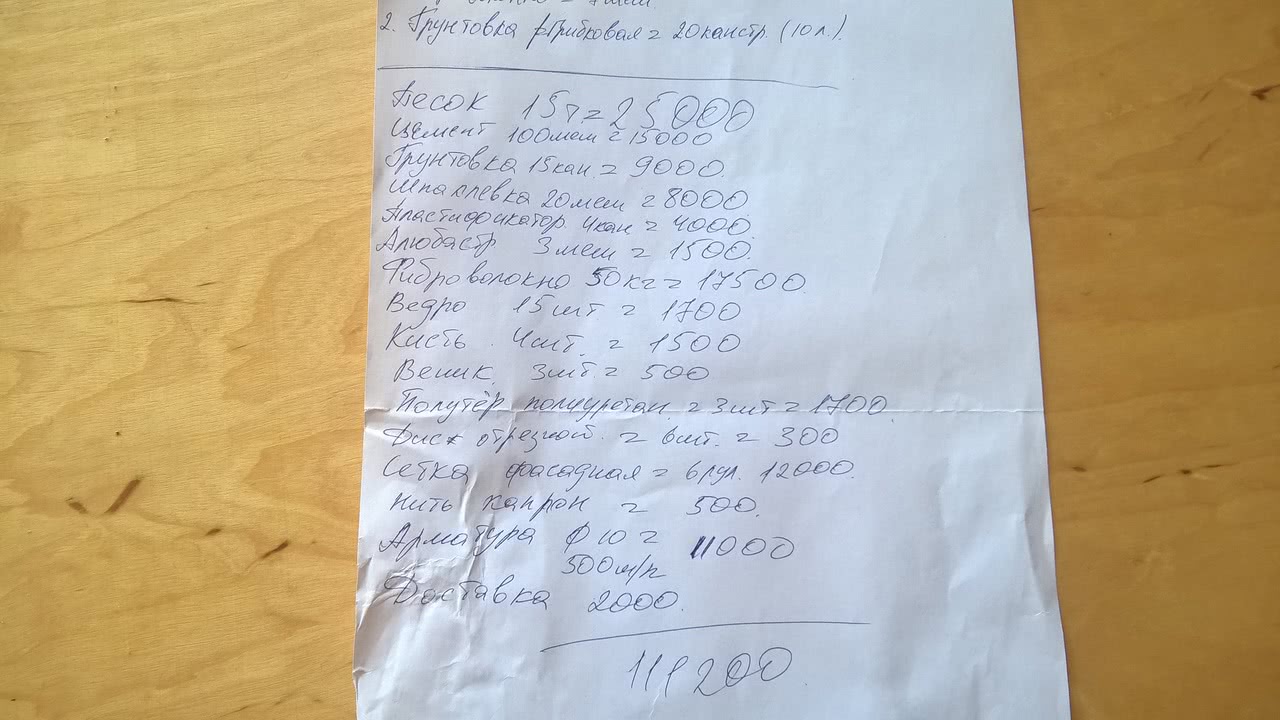 2. Грунтовка грибковая = 20 канстр. (10 л.).
Песок 15т = 25000
Цемент 100меш = 15000
Грунтовка 15кан. = 9000.
Шпаклевка 20меш = 8000
Пластификатор. 4кан = 4000.
Алюбастр 3меш = 1500.
Фиброволокно 50кг = 17500.
Ведро 15шт = 1700
Кисть. 4шт. = 1500
Веник. 3шт = 500
Полутёр полиуретан. = 3шт = 1700.
Диск отрезной. = 6шт. = 300
Сетка фасадная = 6рул. 12000.
Нить капрон = 500.
Арматура ф 10 = 11000
500м/п
Доставка 2000.
111200